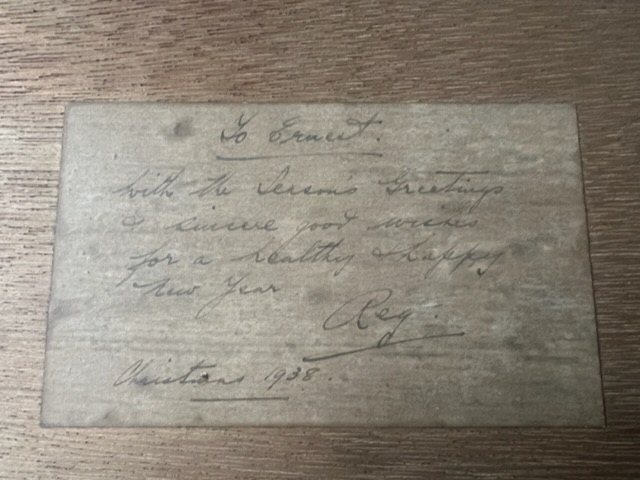 To Ernest.
With the Season's Greetings
& sincere good wishes
for a healthy & happy
New Year.
Reg.
Christmas 1938.